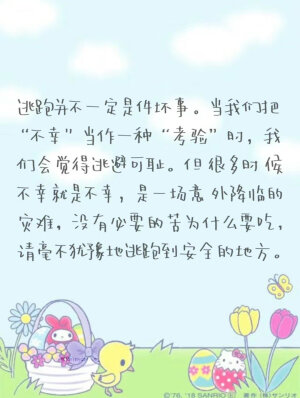 逃跑并不一定是件坏事。当我们把
“不幸”当作一种“考验”时，我
们会觉得逃避可耻。但很多时候
不幸就是不幸，是一场意外降临的
灾难，没有必要的苦为什么要吃，
请毫不犹豫地逃跑到安全的地方。
©'76,'18 SANRIO 著作(株)サンリオ